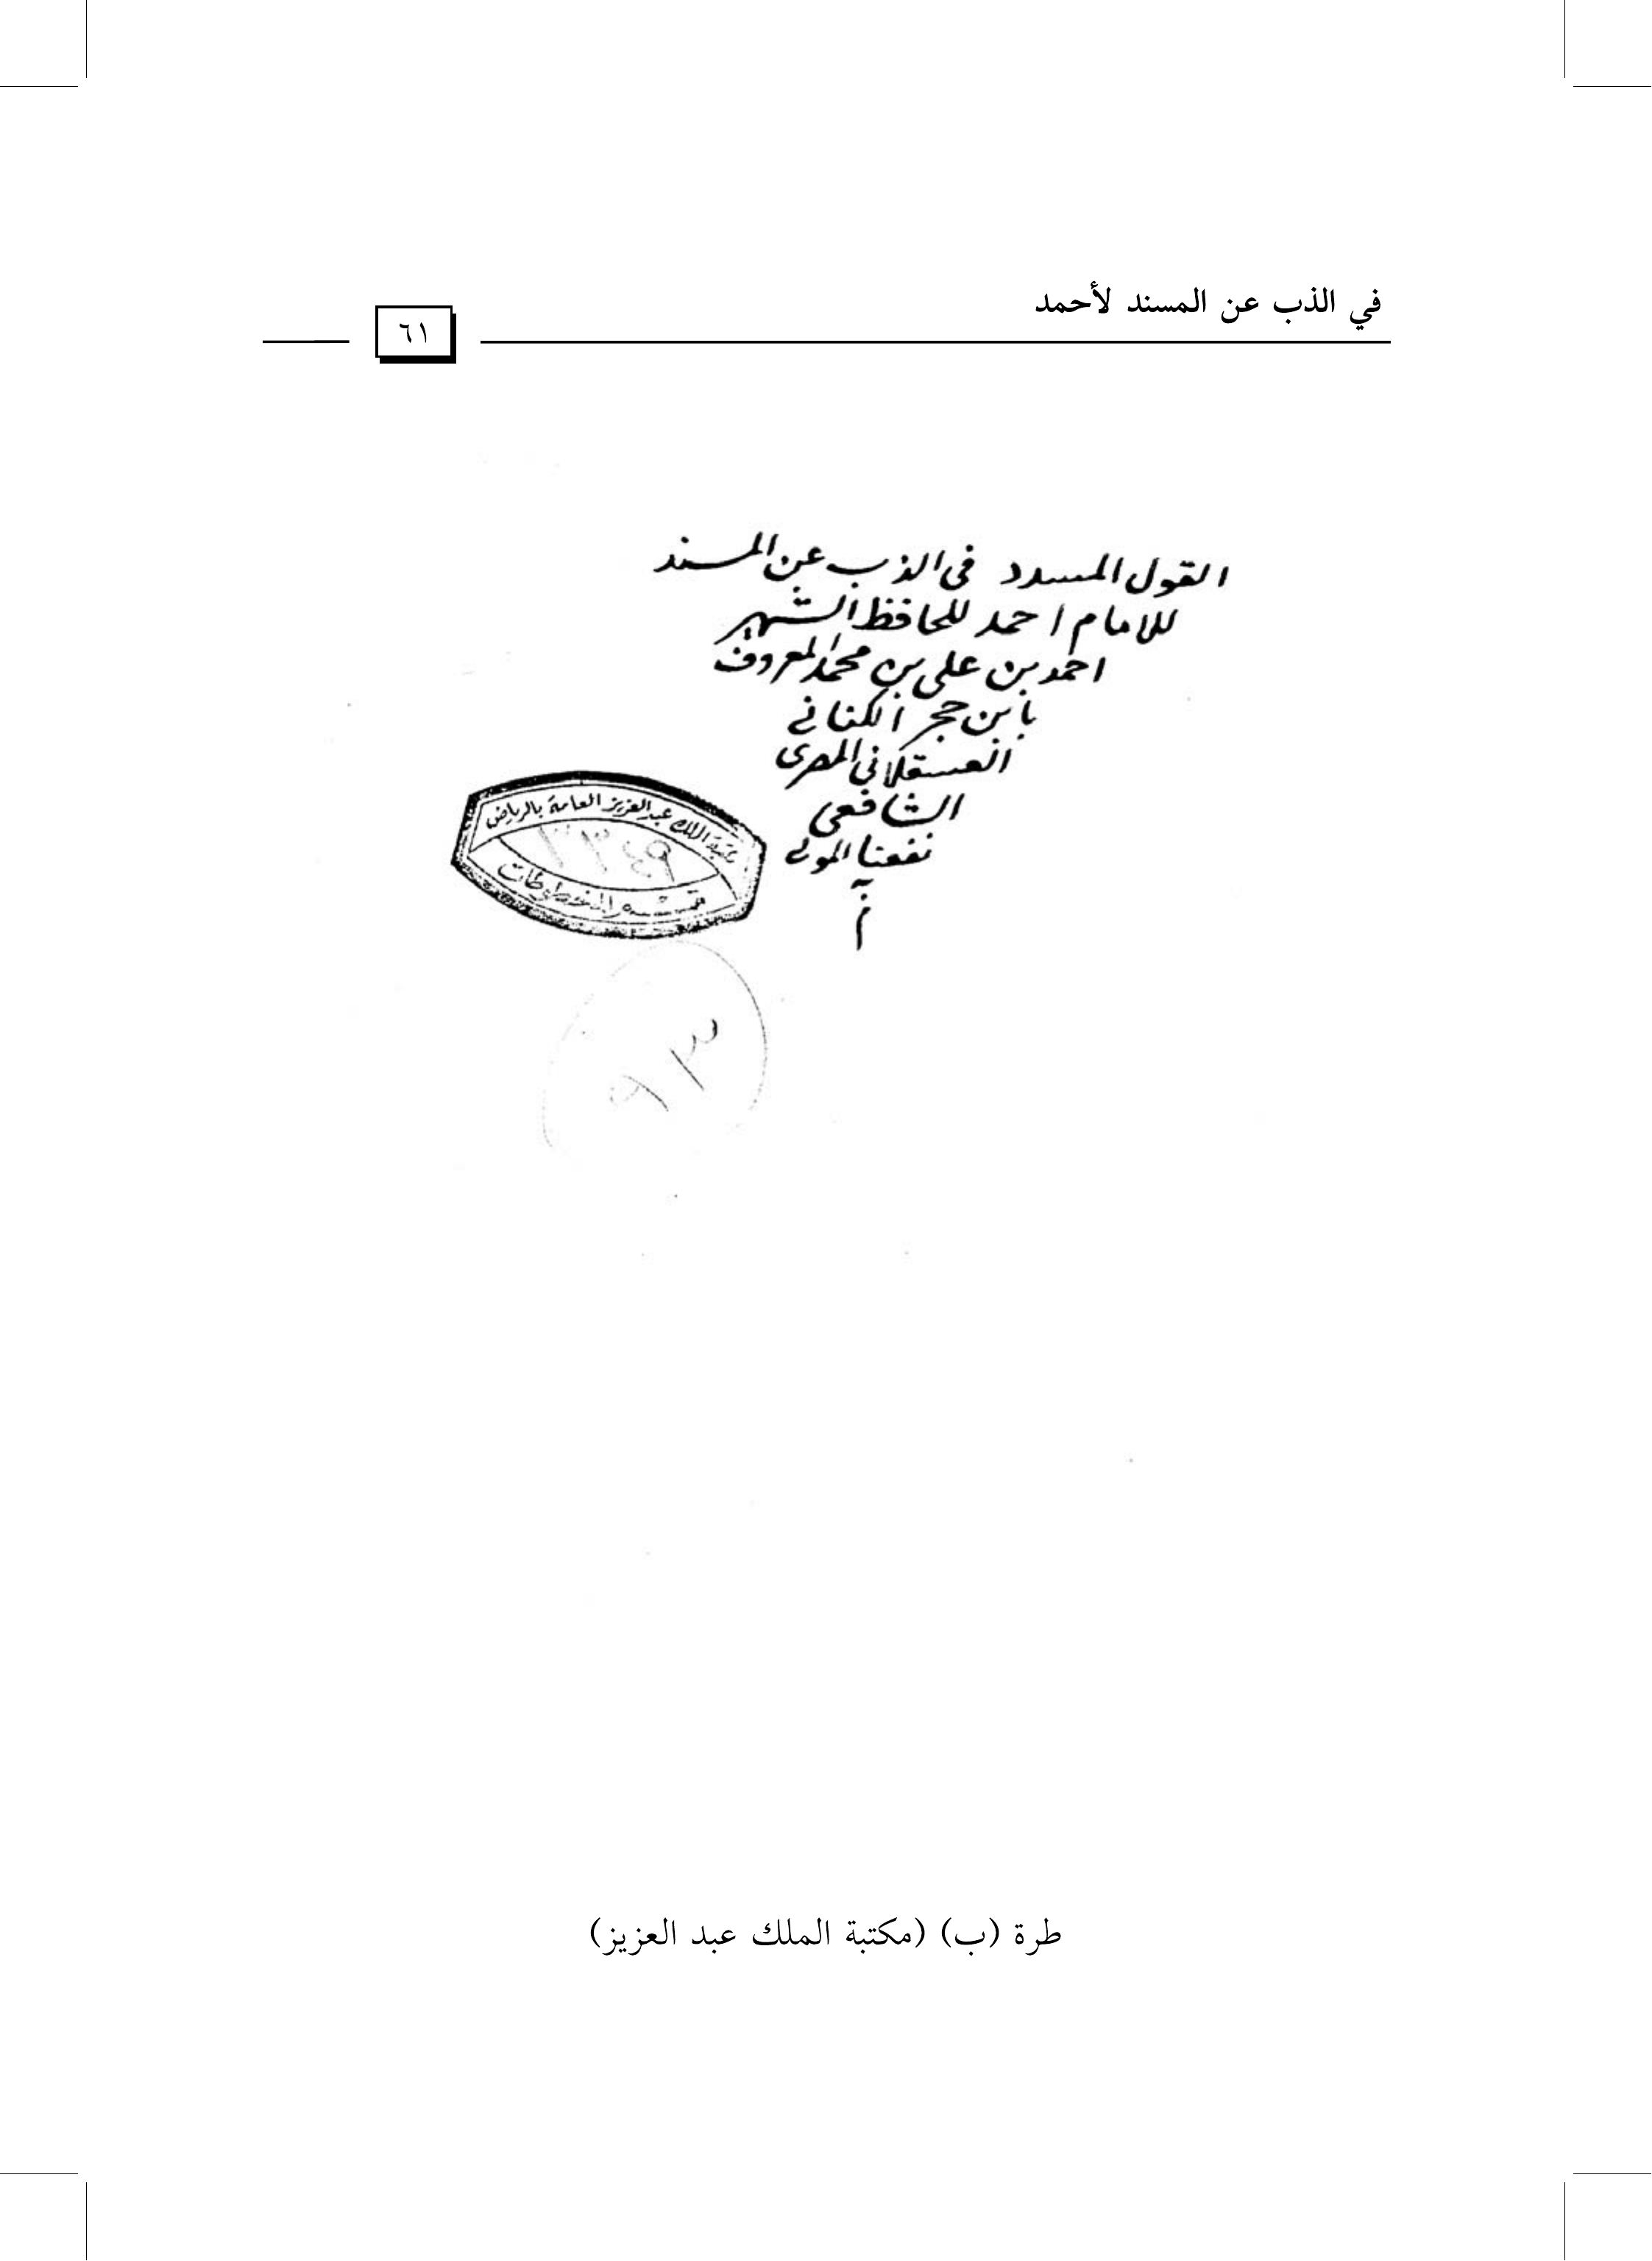 في الذب عن المسند لأحمد
٦١
القول المسدد في الذب عن المسند
للامام احمد للحافظ الشهير
احمد بن علي بن محمد المعروف
بابن حجر الكناني
العسقلاني المصرى
الشافعي
نفعنا المولى
مكتبة الملك عبد العزيز العامة بالرياض
قسم المخطوطات
طرة (ب) (مكتبة الملك عبد العزيز)